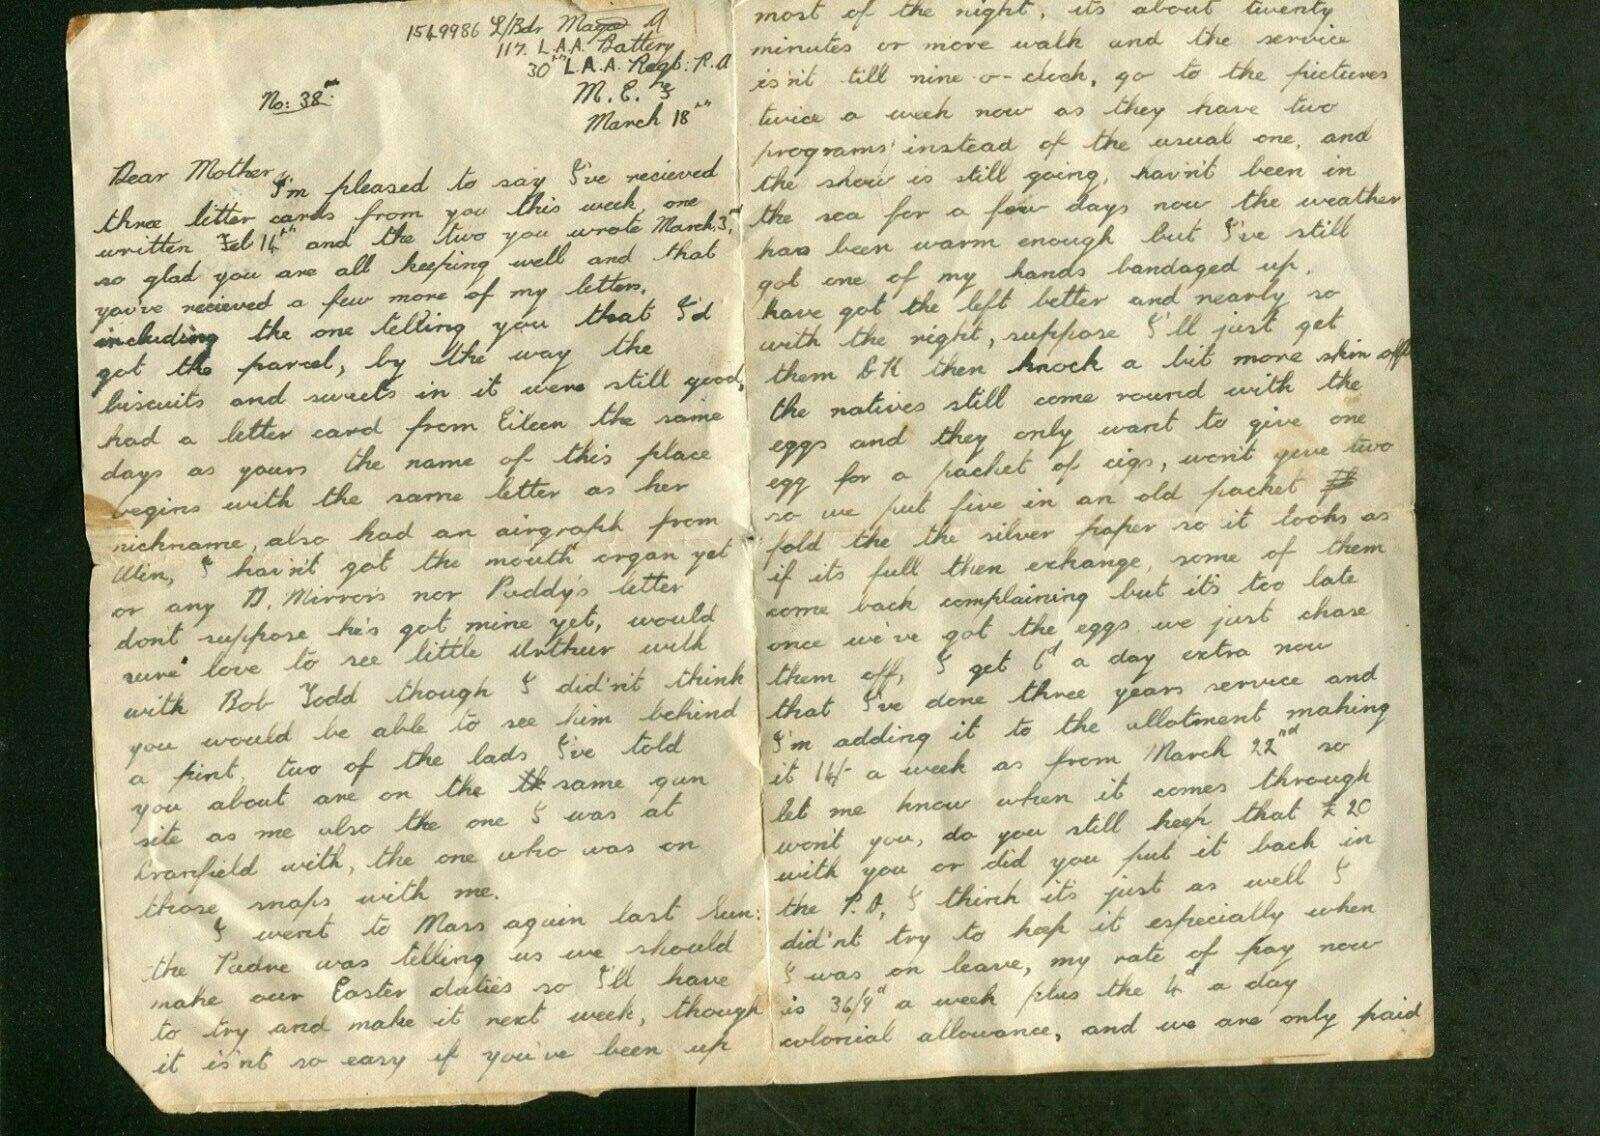 1549986 L/Bdr Mayo A
117. L.A.A. Battery
30th L.A.A. Regt: R.A
No: 38th
M.E.F's
March 18th
Dear Mother
I'm pleased to say I've recieved
three letter cards from you this week, one
written Feb 14th and the two you wrote March 3rd,
so glad you are all keeping well and that
you've recieved a few more of my letters,
including the one telling you that I'd
got the parcel, by the way the
biscuits and sweets in it were still good,
had a letter card from Eileen the same
days as yours the name of this place
begins with the same letter as her
nickname, also had an airgraph from
Win, I hav'nt got the mouth organ yet
or any D. Mirrors nor Paddy's letter
don't suppose he's got mine yet, would
sure love to see little Arthur with
with Bob Todd though I did'nt think
you would be able to see him behind
a pint, two of the lads I've told
you about are on the same gun
site as me also the one I was at
Cranfield with, the one who was on
those snaps with me.
I went to Mass again last Sun:
the Padre was telling us we should
make our Easter duties so I'll have
to try and make it next week, though
it is'nt so easy if you've been up
most of the night, its about twenty
minutes or more walk and the service
is'nt till nine-o-clock, go to the pictures
twice a week now as they have two
programs instead of the usual one, and
the show is still going, hav'nt been in
the sea for a few days now the weather
has been warm enough but I've still
got one of my hands bandaged up,
have got the left better and nearly so
with the right, suppose I'll just get
them O K then knock a bit more skin off
the natives still come round with the
eggs and they only want to give one
egg for a packet of cigs, won't give two
so we put five in an old packet
fold the the silver paper so it looks as
if its full then exhange, some of them
come back complaining but it's too late
once we've got the eggs we just chase
them off, I get 6d a day extra now
that I've done three years service and
I'm adding it to the allotment making
it 14/- a week as from March 22nd so
let me know when it comes through
won't you, do you still keep that £20
with you or did you put it back in
the P.O, I think it's just as well I
did'nt try to keep it especially when
I was on leave, my rate of pay now
is 36/9d a week plus the 4d a day
colonial allowance, and we are only paid